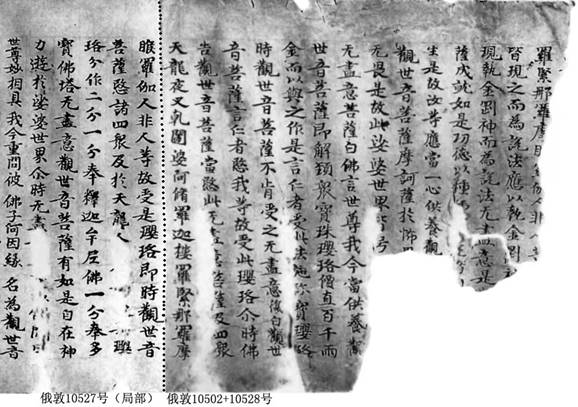 羅緊那羅摩睺伽人非
皆現之而為說法應以執金剛
現執金剛神而為說法无盡意是
薩成就如是功德以種
生是故汝等應當一心供養觀
觀世音菩薩摩訶薩於怖
无畏是故此娑婆世界皆号
无盡意菩薩白佛言世尊我今當供養觀
世音菩薩即解頸眾寶珠瓔珞價直百千兩
金而以與之作是言仁者受此法施珎寶瓔珞
時觀世音菩薩不肯受之无盡意復白觀世
音菩薩言仁者愍我等故受此瓔珞尒時佛
告觀世音菩薩當愍此无盡意菩薩及四眾
天龍夜叉乹闥婆阿脩羅迦樓羅緊那羅摩
睺羅伽人非人等故受是瓔珞即時觀世音
菩薩愍諸四眾及於天龍人瓔
珞分作二分一分奉釋迦牟尼佛一分奉多
寶佛塔无盡意觀世音菩薩有如是自在神
力遊於娑婆世界尒時无盡
世尊妙相具我今重問彼 佛子何因緣 名為觀世音
俄敦10527号（局部） 俄敦10502+10528号